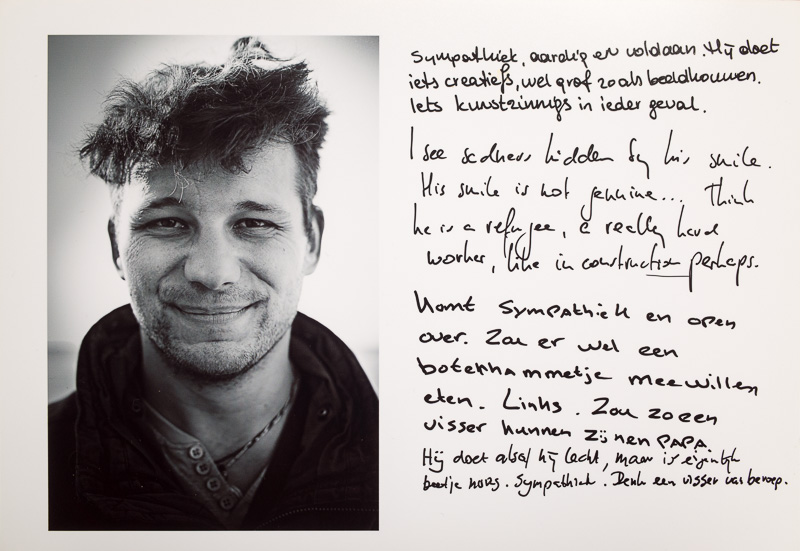 Sympathiek, aardig en voldaan. Hij doet
iets creatiefs, wel grof zoals beeldhouwen.
Iets kunstzinnigs in ieder geval.
I see sadness hidden by his smile.
His smile is not genuine... Think
he is a refugee, a really hard
worker, like in construction perhaps.
Komt sympathiek en open
over. Zou er wel een
boterhammetje mee willen
eten. Links. Zou zo een
visser kunnen zijnen PAPA.
Hij doet alsof hij lacht, maar is eigenlijk
beetje nors. Sympathiek. Denk een visser van beroep.